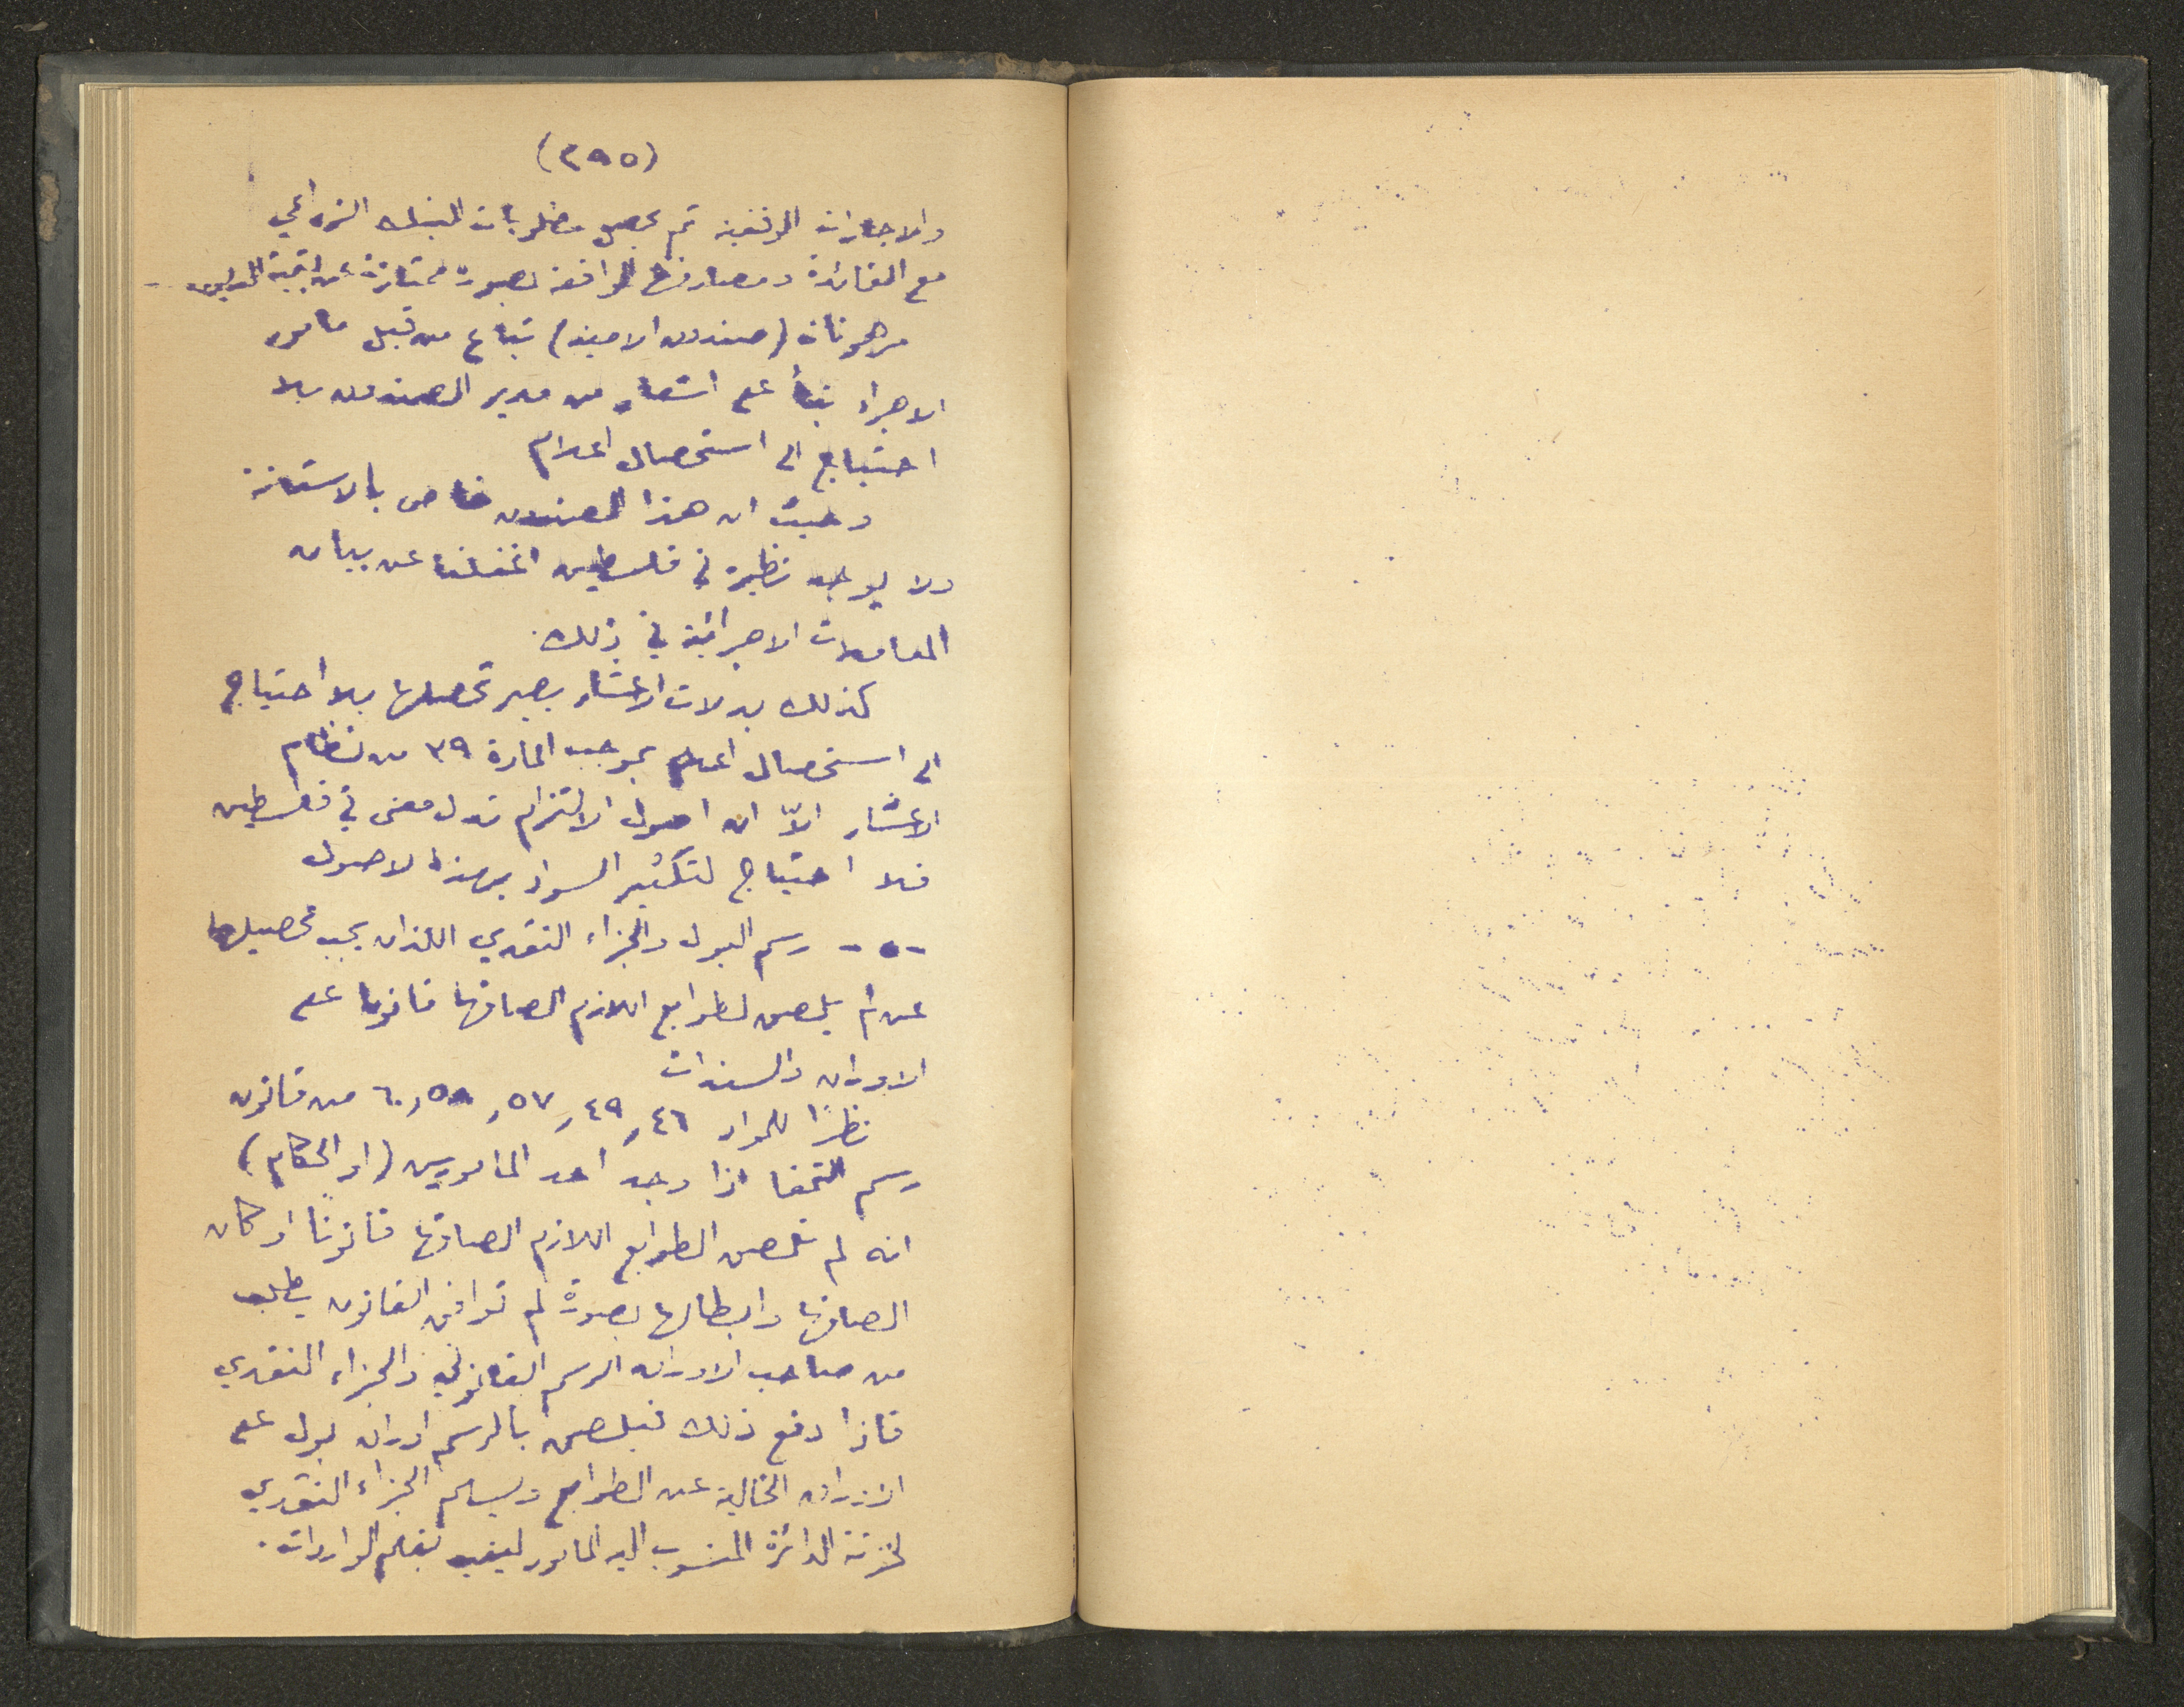 (٢٩٥)
والاجارات الوقفية ثم يحصل مطلوبات البنك الزراعي
مع الفائدة ومصارفها الواقعة بصورة ممتازة عن بقية الديون -
مرهونات (صندوق الامنية) تباع من قبل مامور
الاجراء بناءً على اشعار من مدير الصندوق بلا
احتياج الى استحصال اعلام
وحيث ان هذا الصندوق خاص بالاستانة
ولا يوجد نظيره في فلسطين اغفلنا عن بيان
المعاملات الاجرائية في ذلك .
كذلك بدلات الاعشار يصير تحصيلها بلا احتياج
الى استحصال اعلام بموجب المادة ٣٩ من نظام
الاعشار الاّ ان اصول الالتزام في فلسطين
فلا احتياج لتكثير السواد بهذه الاصول
-٥- رسم البول والجزاء النقدي اللذان يجب تحصيلهما
عن لم يلصق الطوابع اللازم الصاقها قانونا على
الاوراق والسندات
نظرًا للمواد ٤٦, ٤٩, ٥٧, ٥٨, ٦٠ من قانون
رسم التمغا اذا وجد احد المامورين (او الحكام)
انه لم تلصق الطوابع اللازم الصاقها قانونًا او كان
الصاقها وابطالها بصورة لم توافق القانون يطلب
من صاحب الاوراق الرسم القانوني والجزاء النقدي
فاذا دفع ذلك فيلصق بالرسم اوراق بول على
الاوراق الخالية عن الطوابع ويسلم الجزاء النقدي
لخزنة الدائرة المنسوب اليه المامور ليقيد بقلم الواردات .